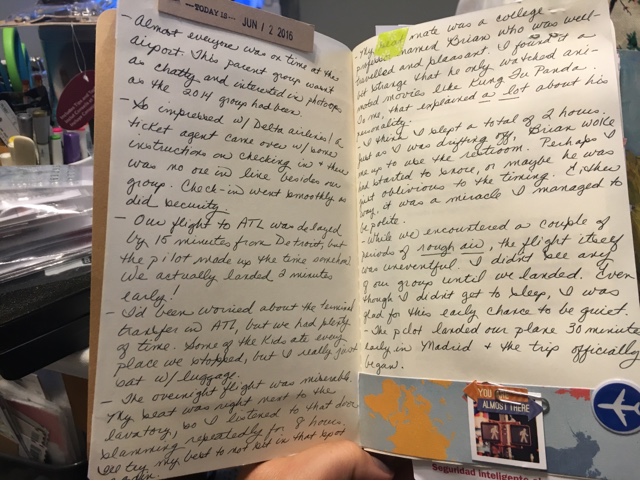 TODAY IS... JUN 12 2016
- Almost everyone was on time at the
airport. This parent group wasn't
as chatty and interested in photo ops
as the 2014 group had been.
- So impressed w/ Delta airlines! A
ticket agent came over w/ some
instructions on checking in & there
was no one in line besides our
group. Check-in went smoothly as
did security.
- Our flight to ATL was delayed
by 15 minutes from Detroit, but
the pilot made up the time somehow.
We actually landed 2 minutes
early!
- I'd been worried about the terminal
transfer in ATL, but we had plenty
of time. Some of the kids ate every
place we stopped, but I really just
sat w/ luggage.
- The overnight flight was miserable.
My seat was right next to the
lavatory, so I listened to that door
slamming repeatedly for 8 hours.
try my best to not sit in that spot
- My seat mate was a college
professor named Brian who was well-
travelled and pleasant. I found it a
bit strange that he only watched ani-
mated movies like Kung Fu Panda.
To me, that explained a lot about his
personality.
- I think I slept a total of 2 hours.
Just as I was drifting off, Brian woke
me up to use the restroom. Perhaps I
had started to snore, or maybe he was
just oblivious to the timing. Either
way, it was a miracle I managed to
be polite.
- While we encountered a couple of
periods of rough air, the flight itself
was uneventful. I didn't see any
of our group until we landed. Even
though I didn't get to sleep, I was
glad for this early chance to be quiet.
- The pilot landed our plane 30 minutes
early in Madrid & the trip officially
began.
YOU ARE
ALMOST THERE
Seguridad inteligente